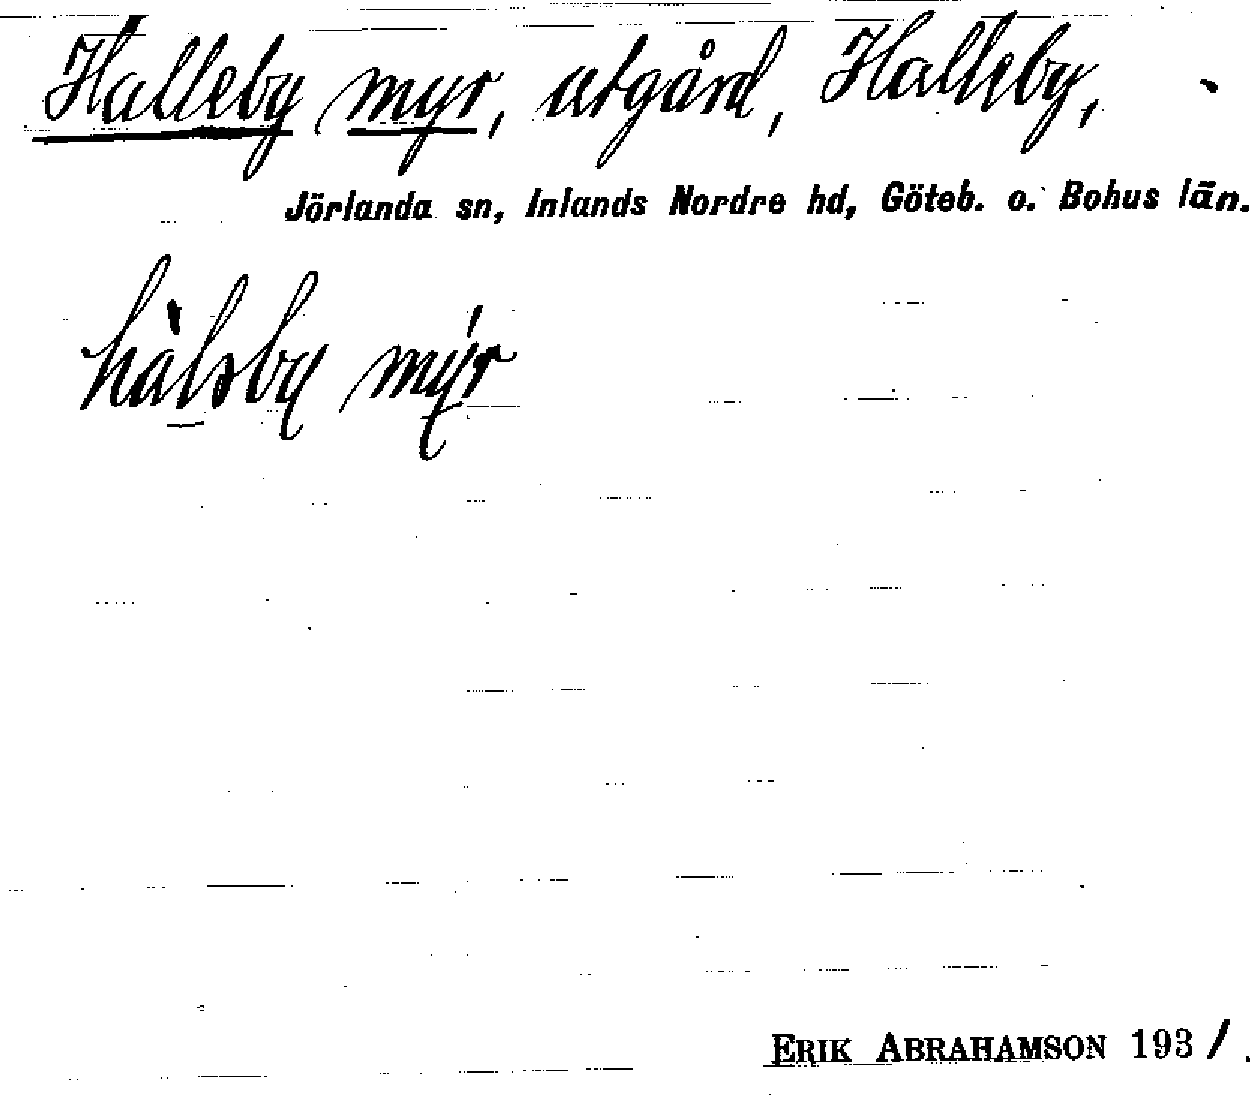 Halleby myr, utgård, Halleby,
Jörlanda sn, Inlands Nordre hd, Göteb. o. Bohus län.
hàlsby mýr
ERIK ABRAHAMSON 1931.